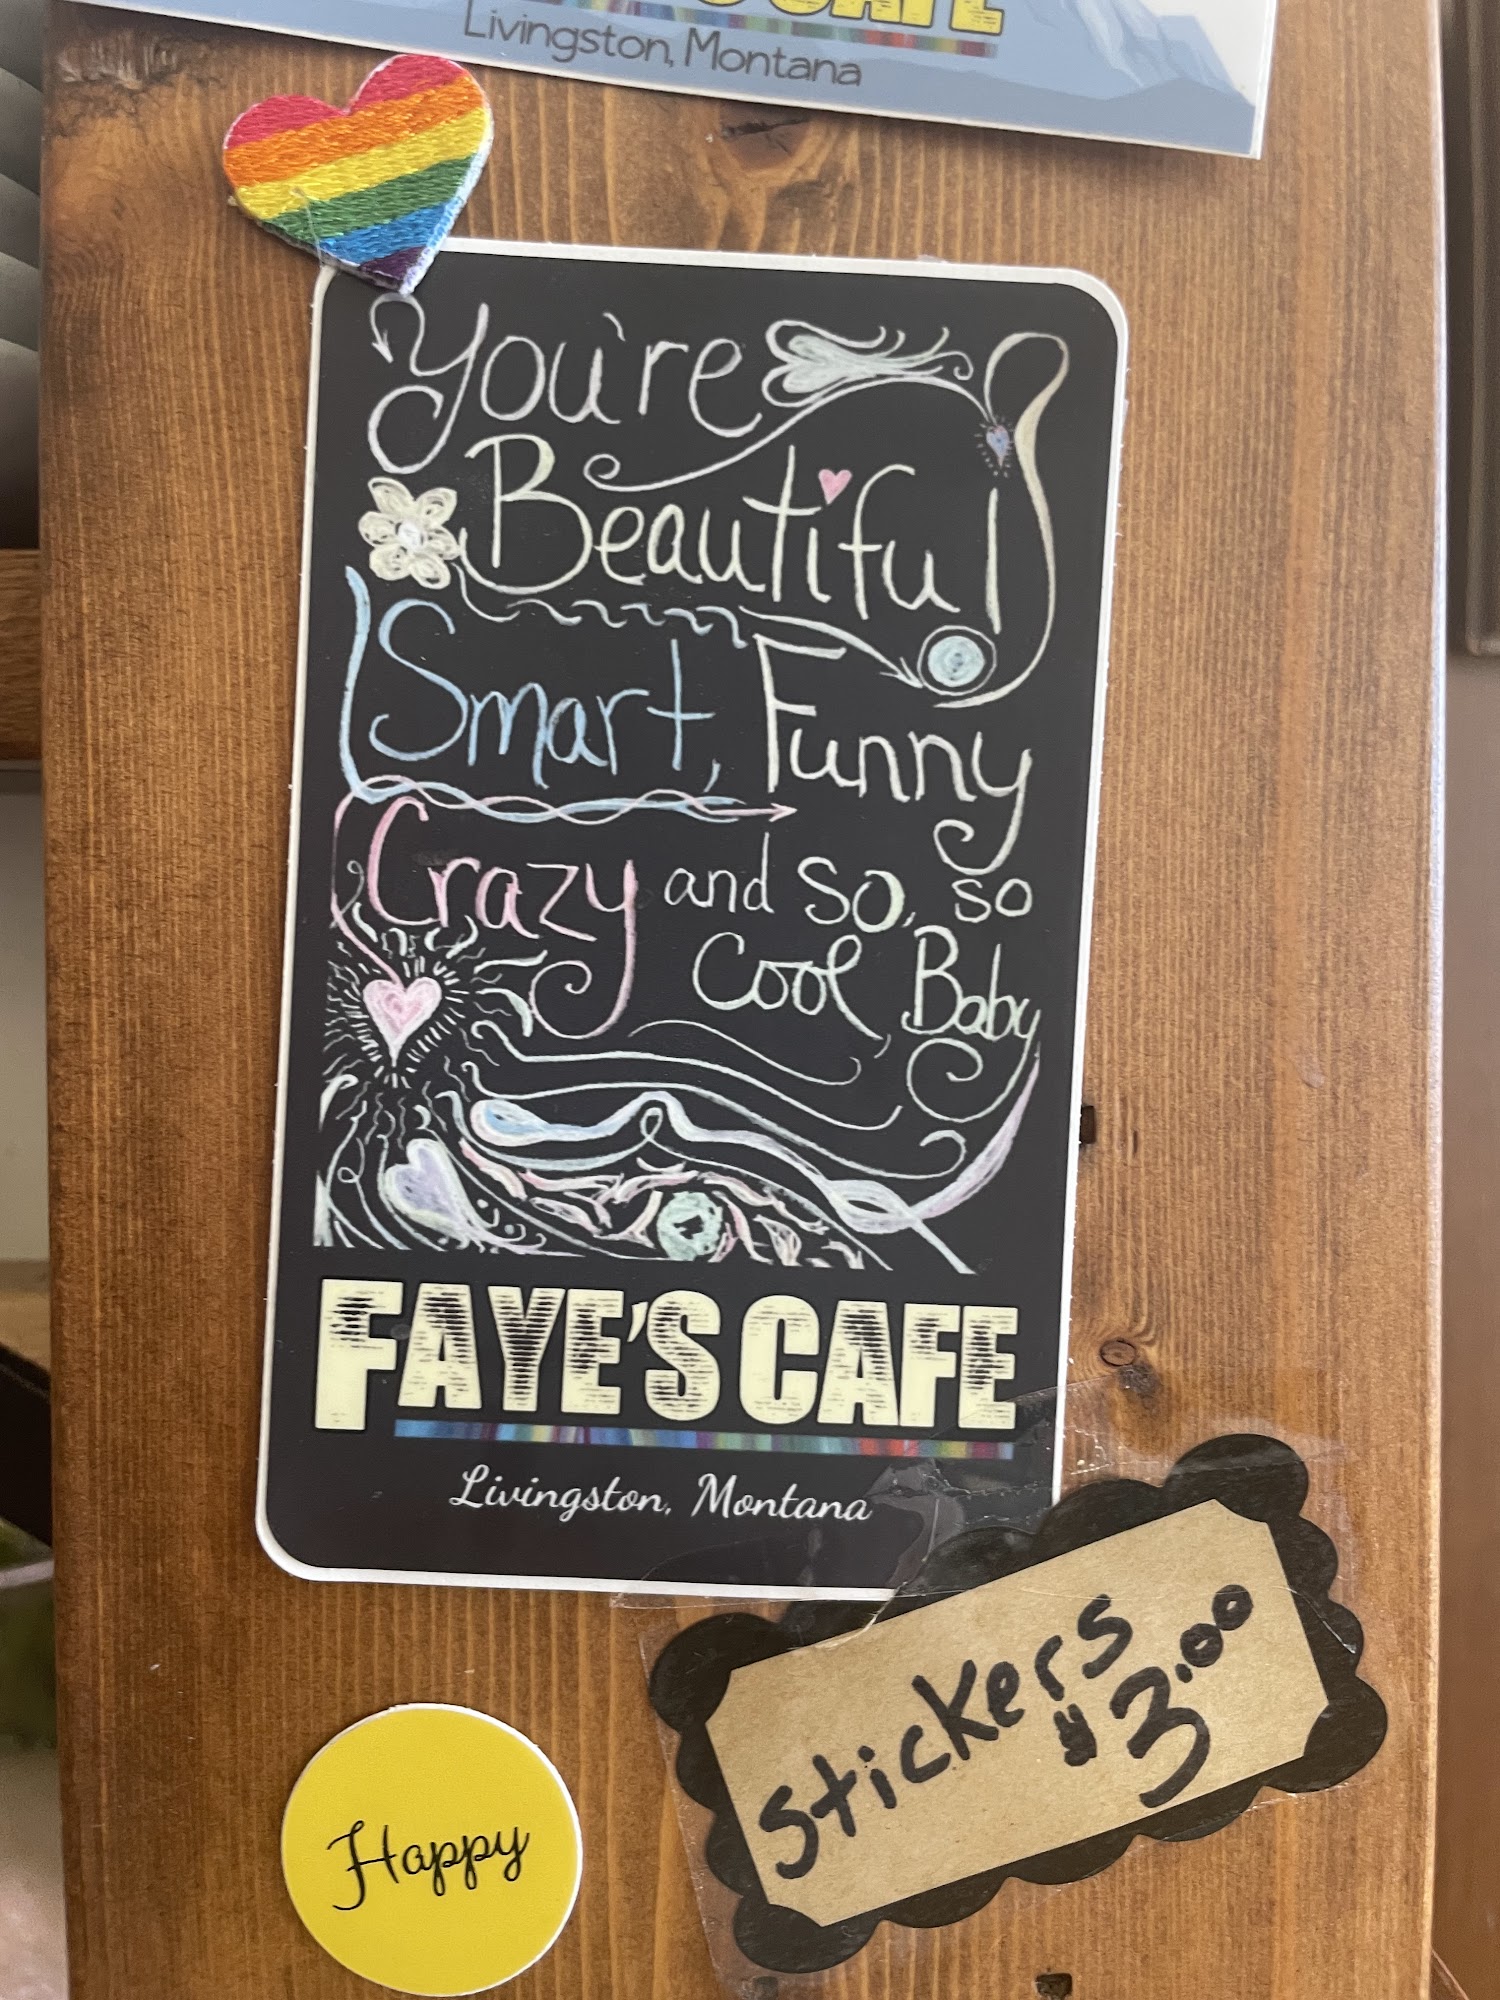 CAFE
Livingston, Montana
You're
Beautiful
Smart, Funny
Crazy and so, so
Cool Baby
FAYE'S CAFE
Livingston, Montana
Stickers
$3.00
Happy